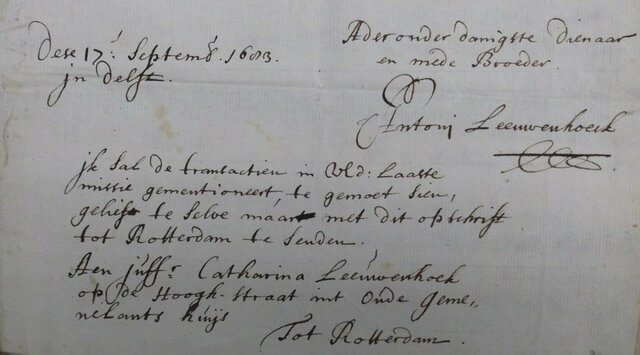 Dese 17: Septembr. 1683.
in Delft.
Aderonderdanigste Dienaar
en mede Broeder.
Antonj Leeuwenhoeck
jk sal de transactien in VEd: Laaste
missie gementioneert, te gemoet sien,
gelieft te selve maar met dit opschrift
tot Rotterdam te senden.
Aen juffr. Catharina Leeuwenhoek
op de Hoogh-straat int Oude Geme,,
nelants huijs
Tot Rotterdam.